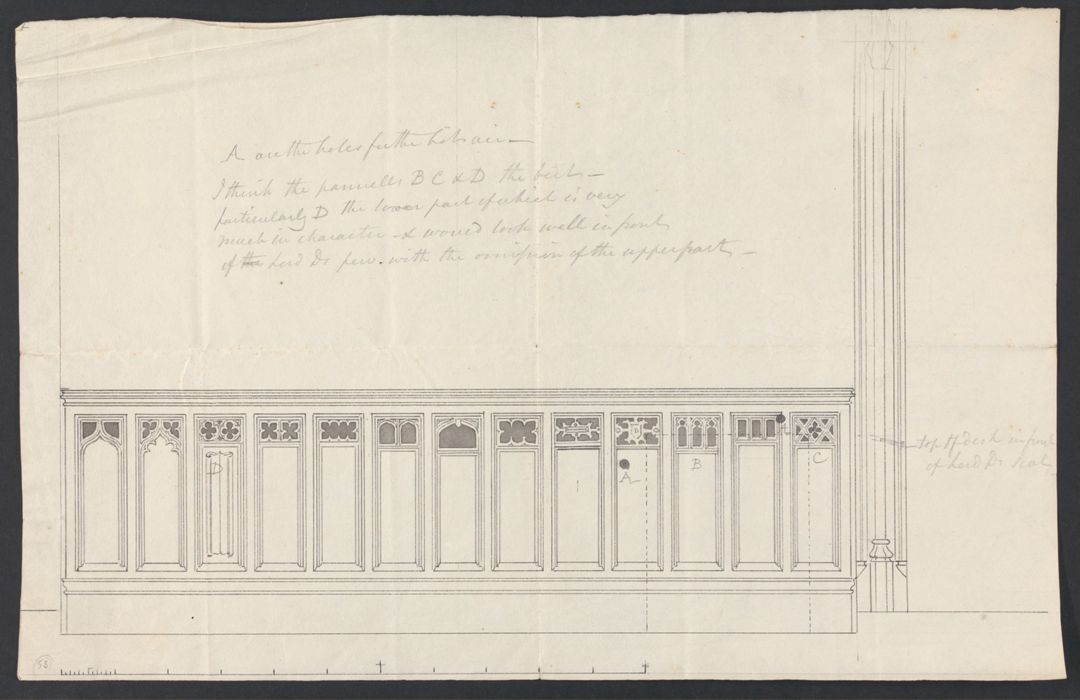 A are the holes for the hot air —
I think the pannells B C & D the best —
particularly D the lower part of which is very
much in character — & would look well in front
of the Lord Ds pew. with the omission of the upper part —
top of desk in front
of Lord Ds seat
D
A
B
C
D
A
53